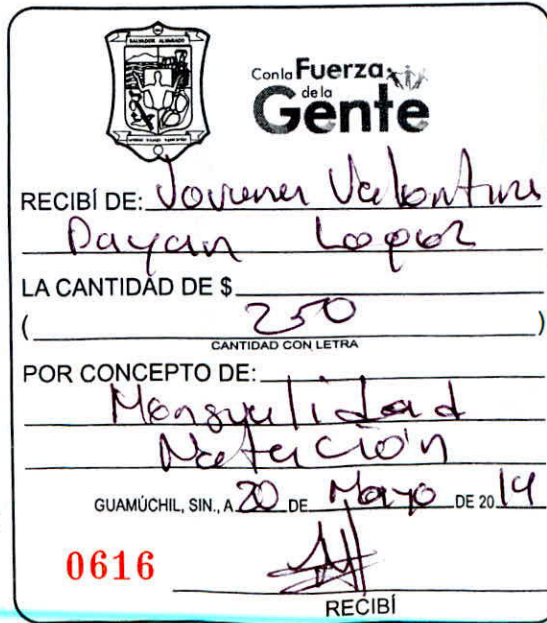 SALVADOR ALVARADO
Con la Fuerza
de la
Gente
RECIBÍ DE: Valentina
Dayan Lopez
LA CANTIDAD DE $
( 250 )
CANTIDAD CON LETRA
POR CONCEPTO DE:
Mensualidad
Natación
GUAMÚCHIL, SIN., A 20 DE Mayo DE 20 14
0616
RECIBÍ